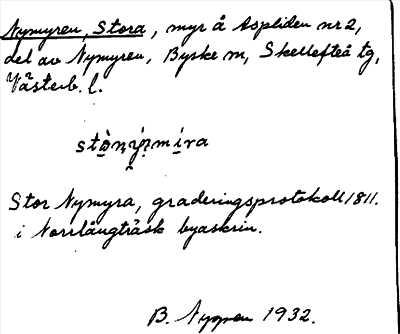 Nymyren, Stora, myr å Aspliden nr 2,
del av Nymyren, Byske m, Skellefteå tg,
Västerb. l.
Stor Nymyra, graderingsprotokoll 1811.
i Norrlångträsk byaskrin.
B. Nygren 1932.